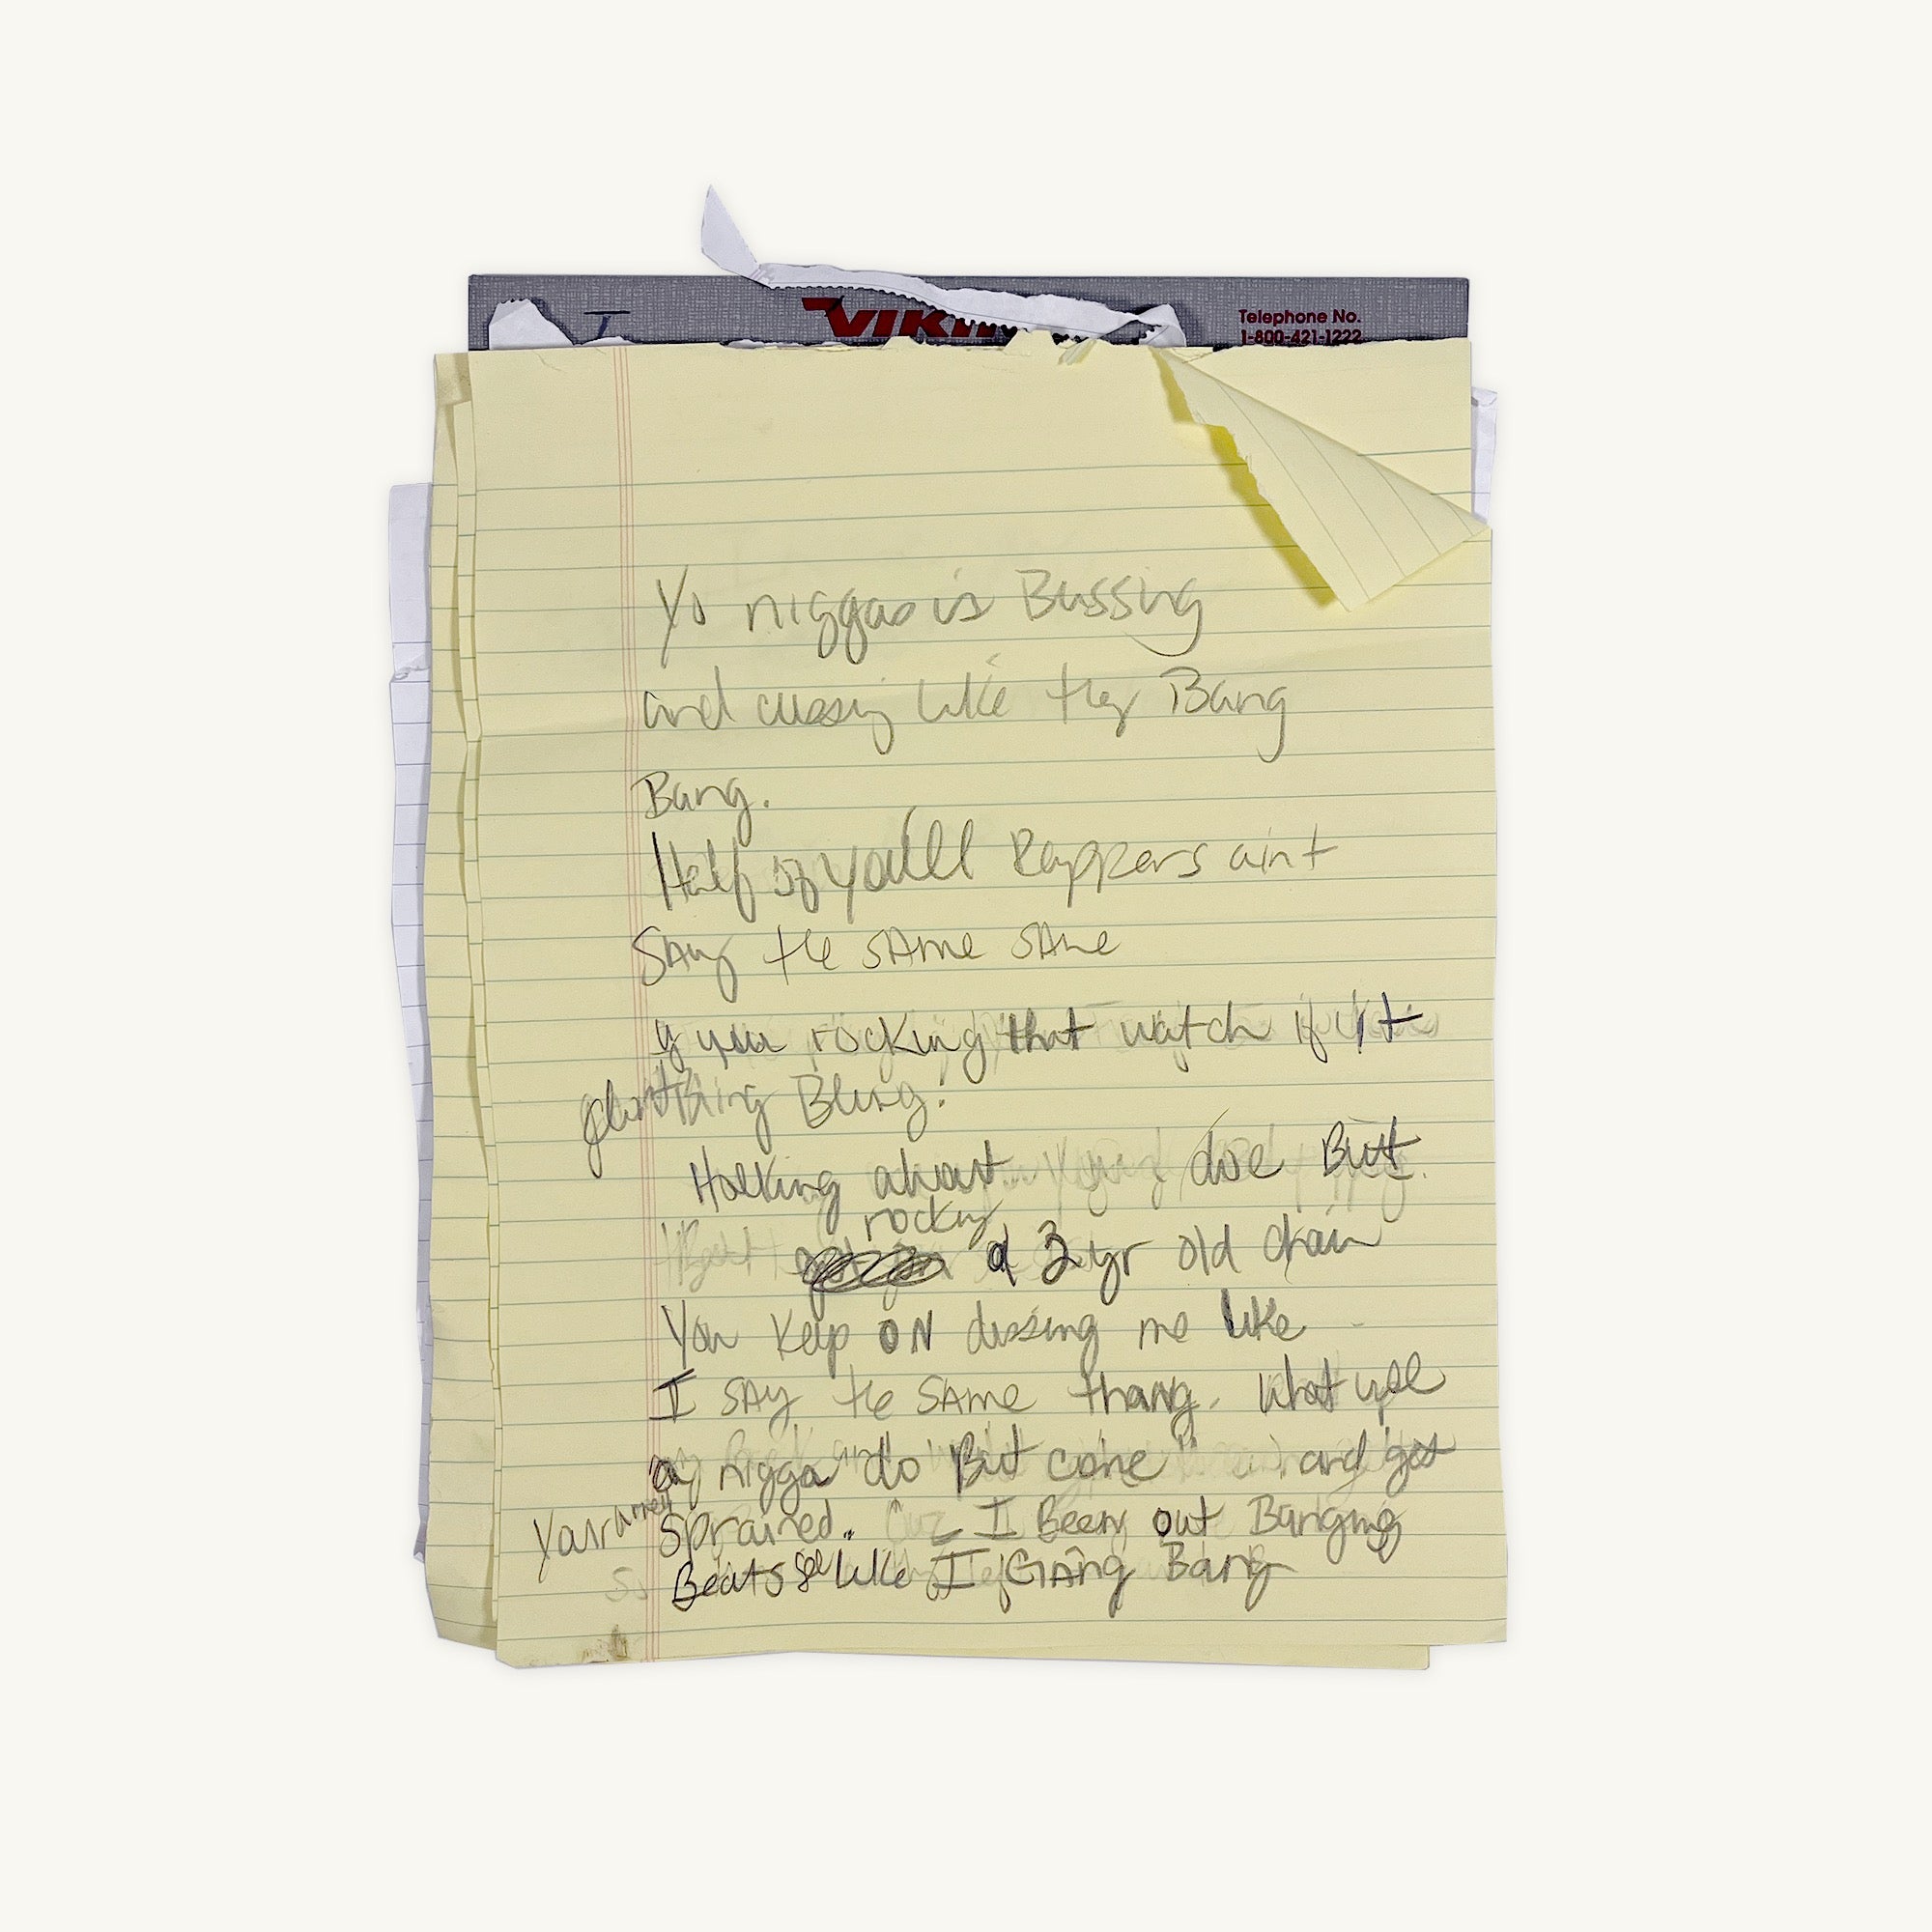 I VIKIN
Telephone No.
1-800-421-1222
Yo niggas is Bussing
and cussing like they Bang
Bang.
Half of you'll Rappers aint
SAy the sAme sAme
you rocking that watch if it
Bling!
talking about doe But
rocking
a 3 yr old chain
You Keep ON dissing me like
I SAY the SAme thang. What yall
nigga do But come and get
Your
Sprained. Cuz I Been out Banging
Beats like I GAng Bang